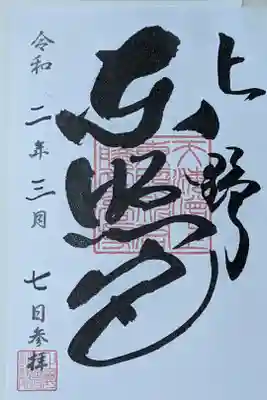 上野
東照宮
令和二年三月七日参拝